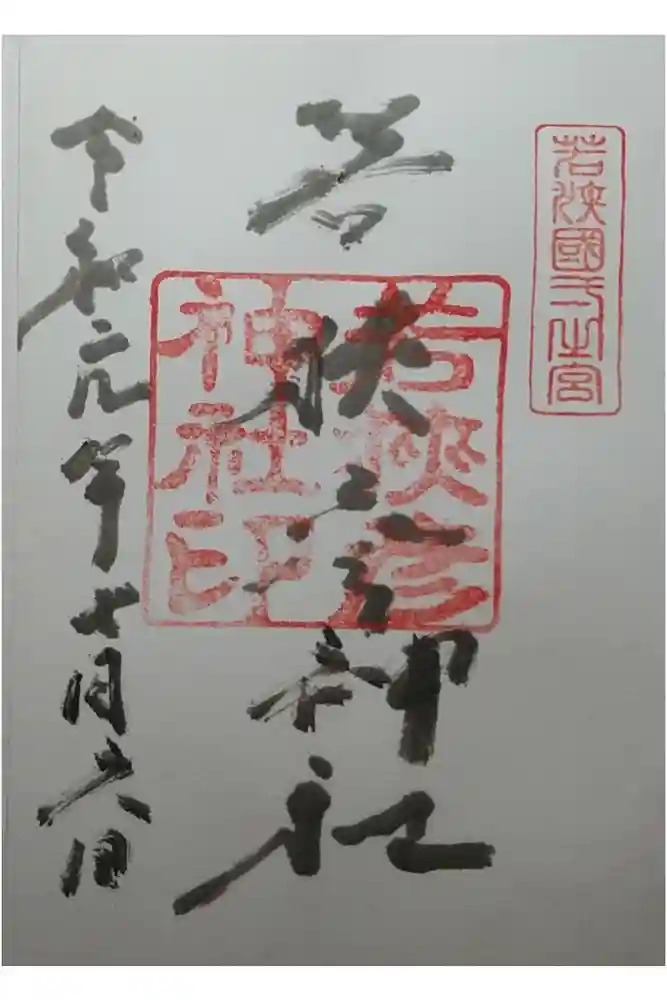 若狭國一之宮
若狭彦神社
若狭彦
神社印
令和元年七月六日